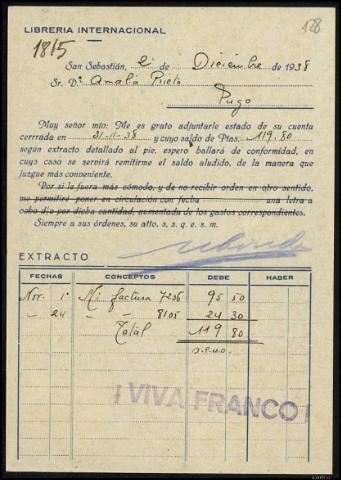 128
LIBRERIA INTERNACIONAL
1815
San Sebastián, 2 de Diciembre de 1938
Sr. Dª Amalia Prieto
Muy señor mío: Me es grato adjuntarle estado de su cuenta
cerrrada en 31-11-38 y cuyo saldo de Ptas. 119.80
según extracto detallado al pie, espero hallará de conformidad, en
cuyo caso se servirá remitirme el saldo aludido, de la manera que
juzgue más conveniente.
Por si le fuera más cómodo, y de no recibir orden en otro sentido,
me permitiré poner en circulación con fecha una letra a
ocho d/v por dicha cantidad, aumentada de los gastos correspondientes.
Siempre a sus órdenes, su atto. s. s. q. e. s. m.
EXTRACTO
FECHAS CONCEPTOS DEBE HABER
Nov. 1º Mi factura 7256 95 50
" 24 " " 8105 24 30
Total 119 80
s.e.u.o.
¡ VIVA FRANCO !